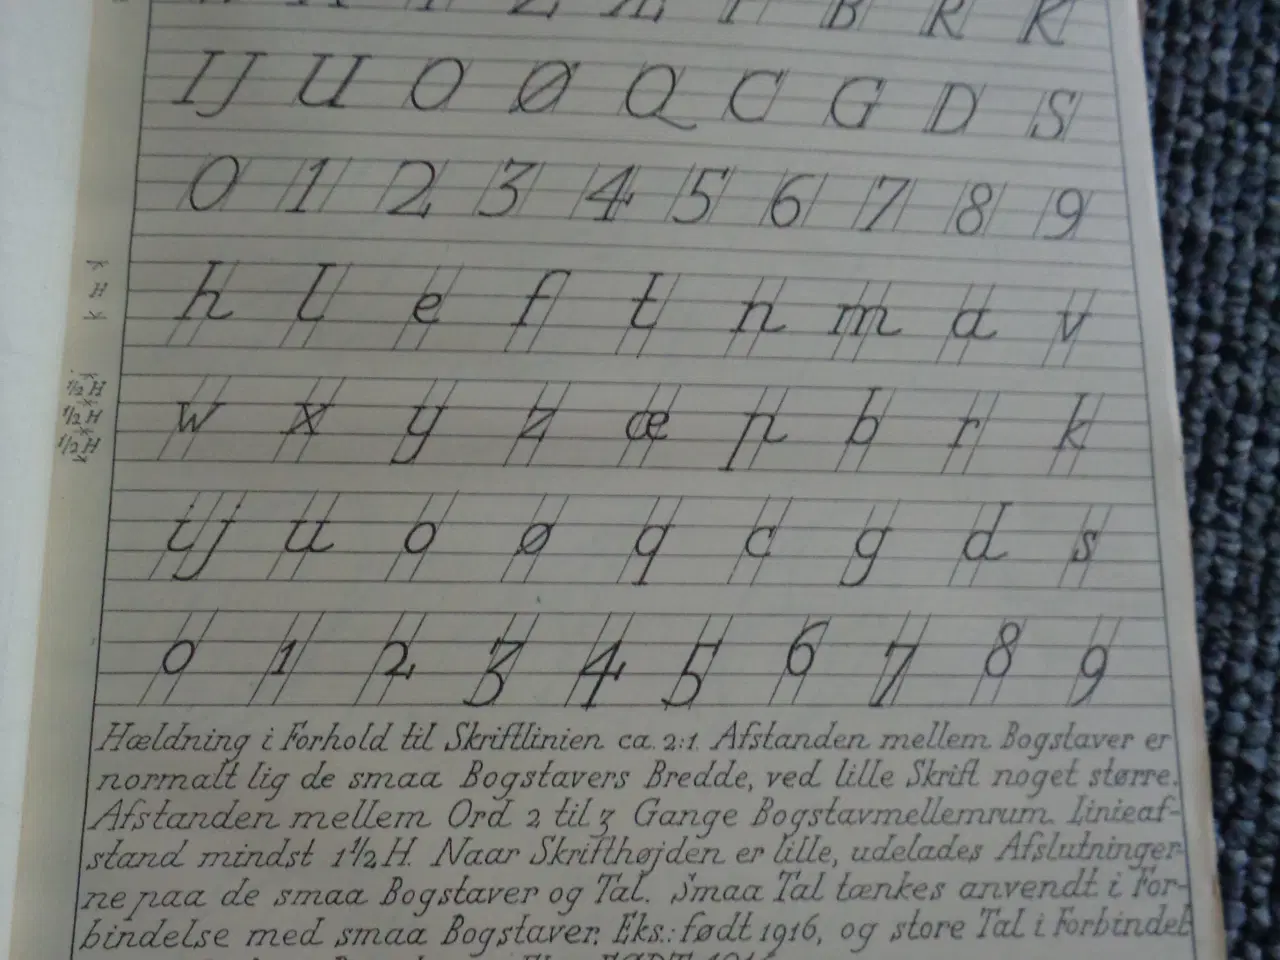 B R K
IJ U O Ø Q C G D S
0 1 2 3 4 5 6 7 8 9
H
h l e f t n m a v
1/2 H
1/2 H
1/2 H
w x y z æ p b r k
ij u o ø q c g d s
0 1 2 3 4 5 6 7 8 9
Hældning i Forhold til Skriftlinien ca. 2:1. Afstanden mellem Bogstaver er
normalt lig de smaa Bogstavers Bredde, ved lille Skrift noget større.
Afstanden mellem Ord 2 til 3 Gange Bogstavmellemrum. Linieaf-
stand mindst 1 1/2 H. Naar Skrifthøjden er lille, udelades Afslutninger-
ne paa de smaa Bogstaver og Tal. Smaa Tal tænkes anvendt i For-
bindelse med smaa Bogstaver. Eks.: født 1916, og store Tal i Forbindel-